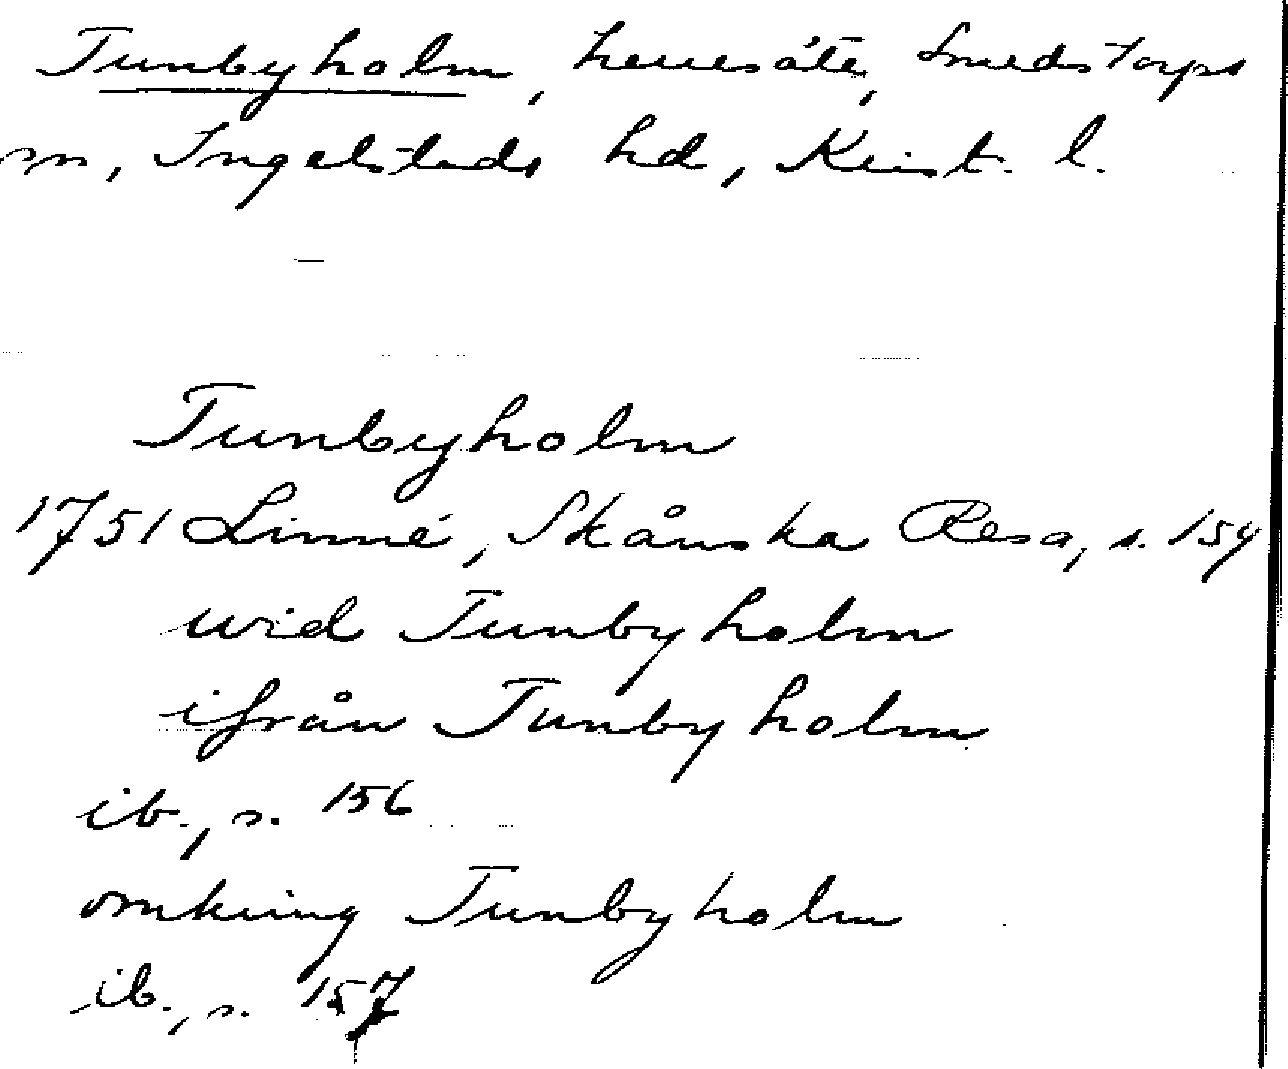 Tunbyholm, herresäte, Smedstorps
sn, Ingelstads hd, Krist. l.
Tunbyholm
1751 Linné, Skånska Resa, s. 154
wid Tunbyholm
ifrån Tunbyholm
ib., s. 156
omkring Tunbyholm
ib., s. 157